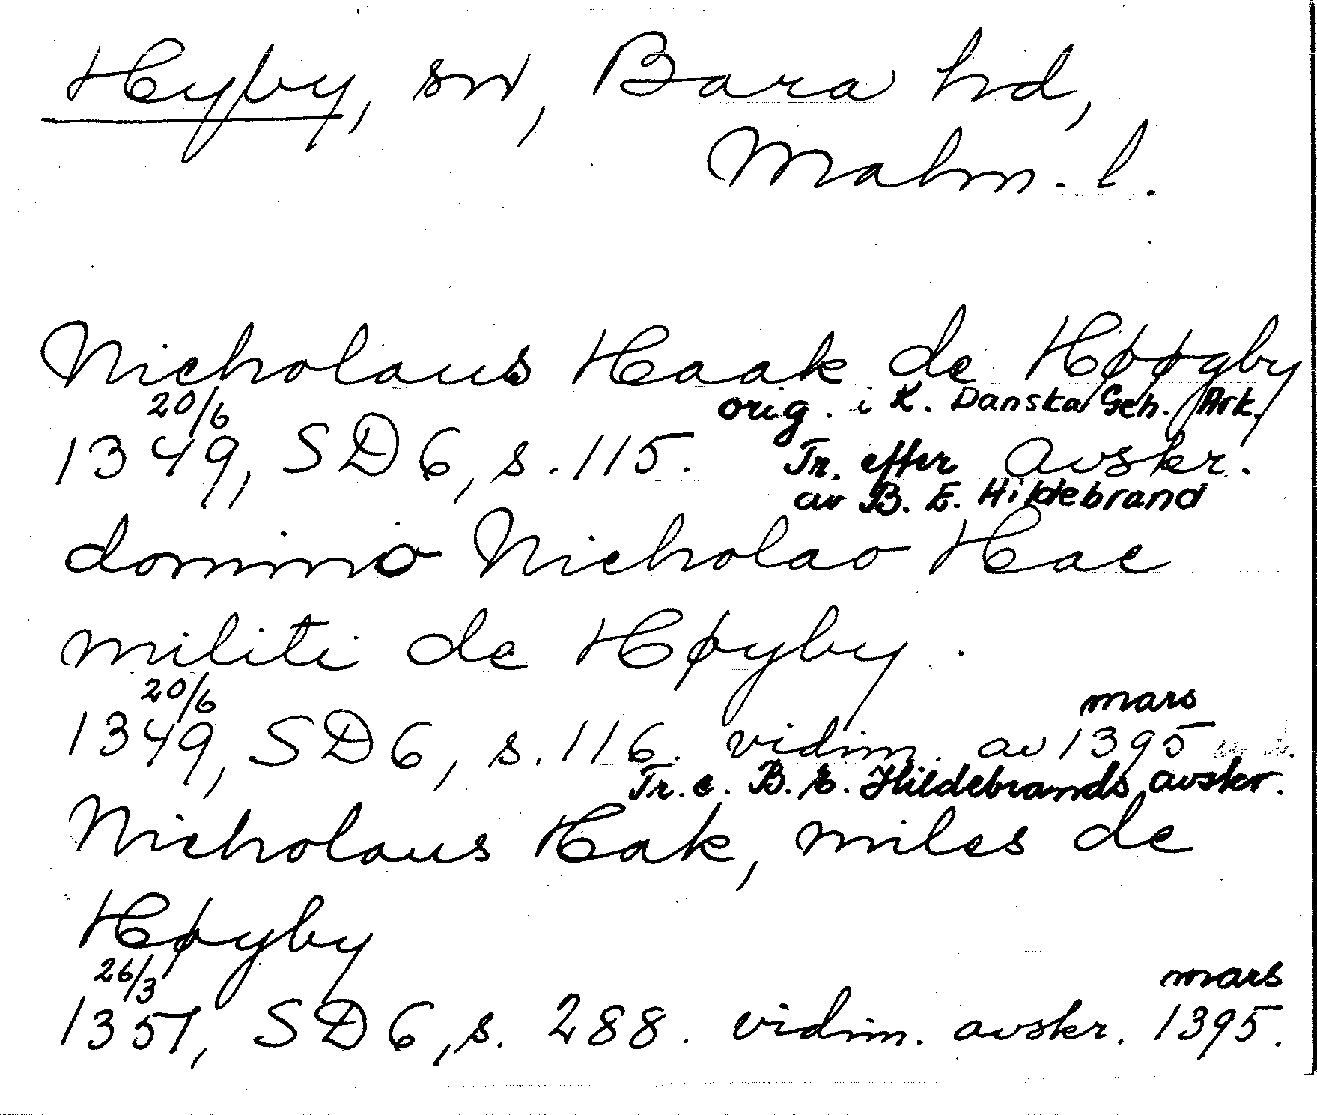 Hyby, sn, Bara hd,
Malm. l.
Nicholaus Haak de Høøgby
20/6 orig. i K. Danska Geh. Ark.
1349, SD 6, s. 115. Tr. efter avskr.
av B. E. Hildebrand
domino Nicholao Hac
militi de Høyby.
20/6 mars
1349, SD 6, s. 116. vidim. av 1395
Tr. e. B. E. Hildebrands avskr.
Nicholaus Hak, miles de
Høyby
26/3 mars
1351, SD 6, s. 288. vidim. avskr. 1395.